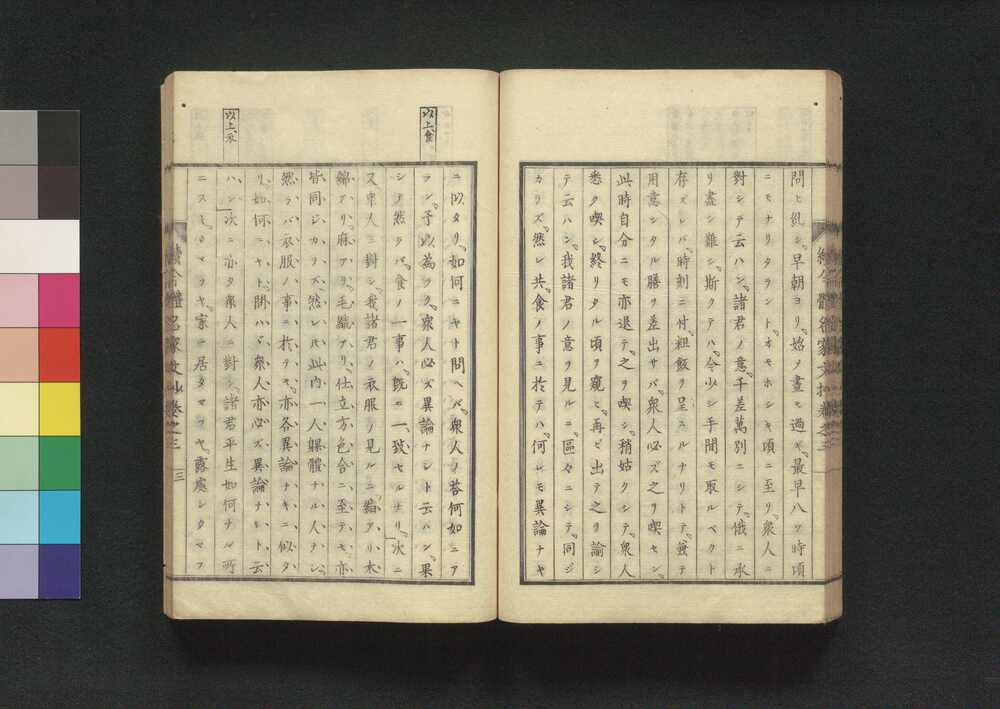 問ヒ糺シ、早朝ヨリ、姑ク晝モ過ギ、最早八ツ時頃
ニモナリタラント、オモホシキ頃ニ至リ、衆人ニ
對シテ云ハン、諸君ノ意、千差萬別ニシテ、俄ニ承
リ盡シ難シ、斯クテハ、今少シ手間モ取ルベクト
存ズレバ、時刻ニ付、粗飯ヲ呈スルナリトテ、兼テ
用意シタル膳ヲ差出サバ、衆人必ズ之ヲ喫セン、
此時自分ニモ亦退テ、之ヲ喫シ、稍姑クシテ、衆人
悉ク喫シ、終リタル頃ヲ窺ヒ、再ビ出テ之ヲ論シ
テ云ハン、我諸君ノ意ヲ見ルニ、區々ニシテ、同ジ
カラズ、然レ共、食ノ事ニ於テハ、何レモ異論ナキ
ニ似タリ、如何ニヤト問ヘバ、衆人ノ荅何如ニア
ラン、予以爲ラク、衆人必ズ異論ナシト云ハン、果
シテ然ラバ、食ノ一事ハ、既ニ一致セルナリ、次ニ
又衆人ニ對シ、我諸君ノ衣服ヲ見ルニ、絹アリ、木
綿アリ、麻アリ、毛織アリ、仕立方色合ニ至テモ、亦
皆同ジカラズ、然レ𪜈此内一人躶體ナル人ナシ、
然ラバ衣服ノ事ニ於テモ、亦各異論ナキニ似タ
リ、如何ニヤト、問ハヾ、衆人亦必ズ異論ナシト云
ハン、次ニ亦タ衆人ニ對シ、諸君平生如何ナル所
ニスミタマフヤ、家ニ居タマフヤ、露處シタマフ
以上食
以上衣
三